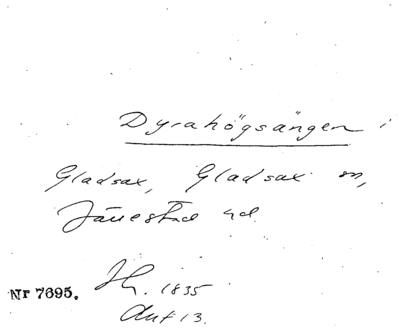 Dyrahögsängen i
Gladsax, Gladsax sn,
Järrestad hd.
Nr 7695.
1835
Akt 13.